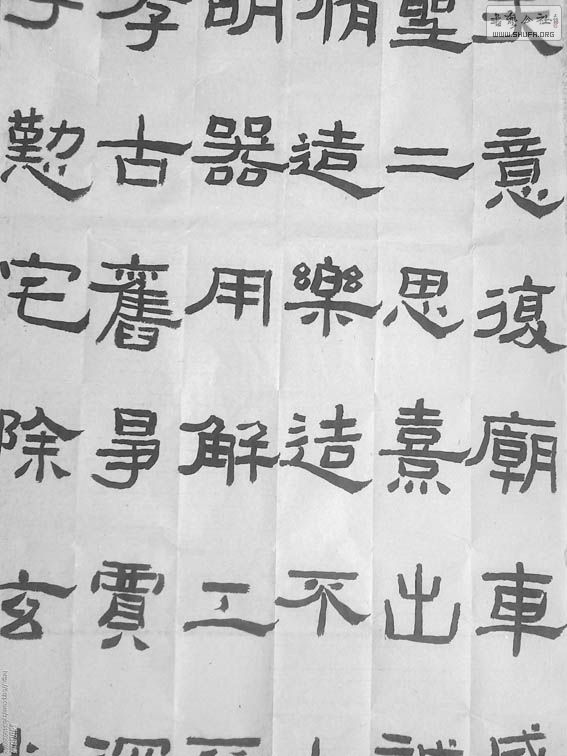 意復廟車
聖二思熹出誠
脩造樂造不
明器用解工
孝古舊賈深
懃宅除玄
书艺公社
WWW.SHUFA.ORG